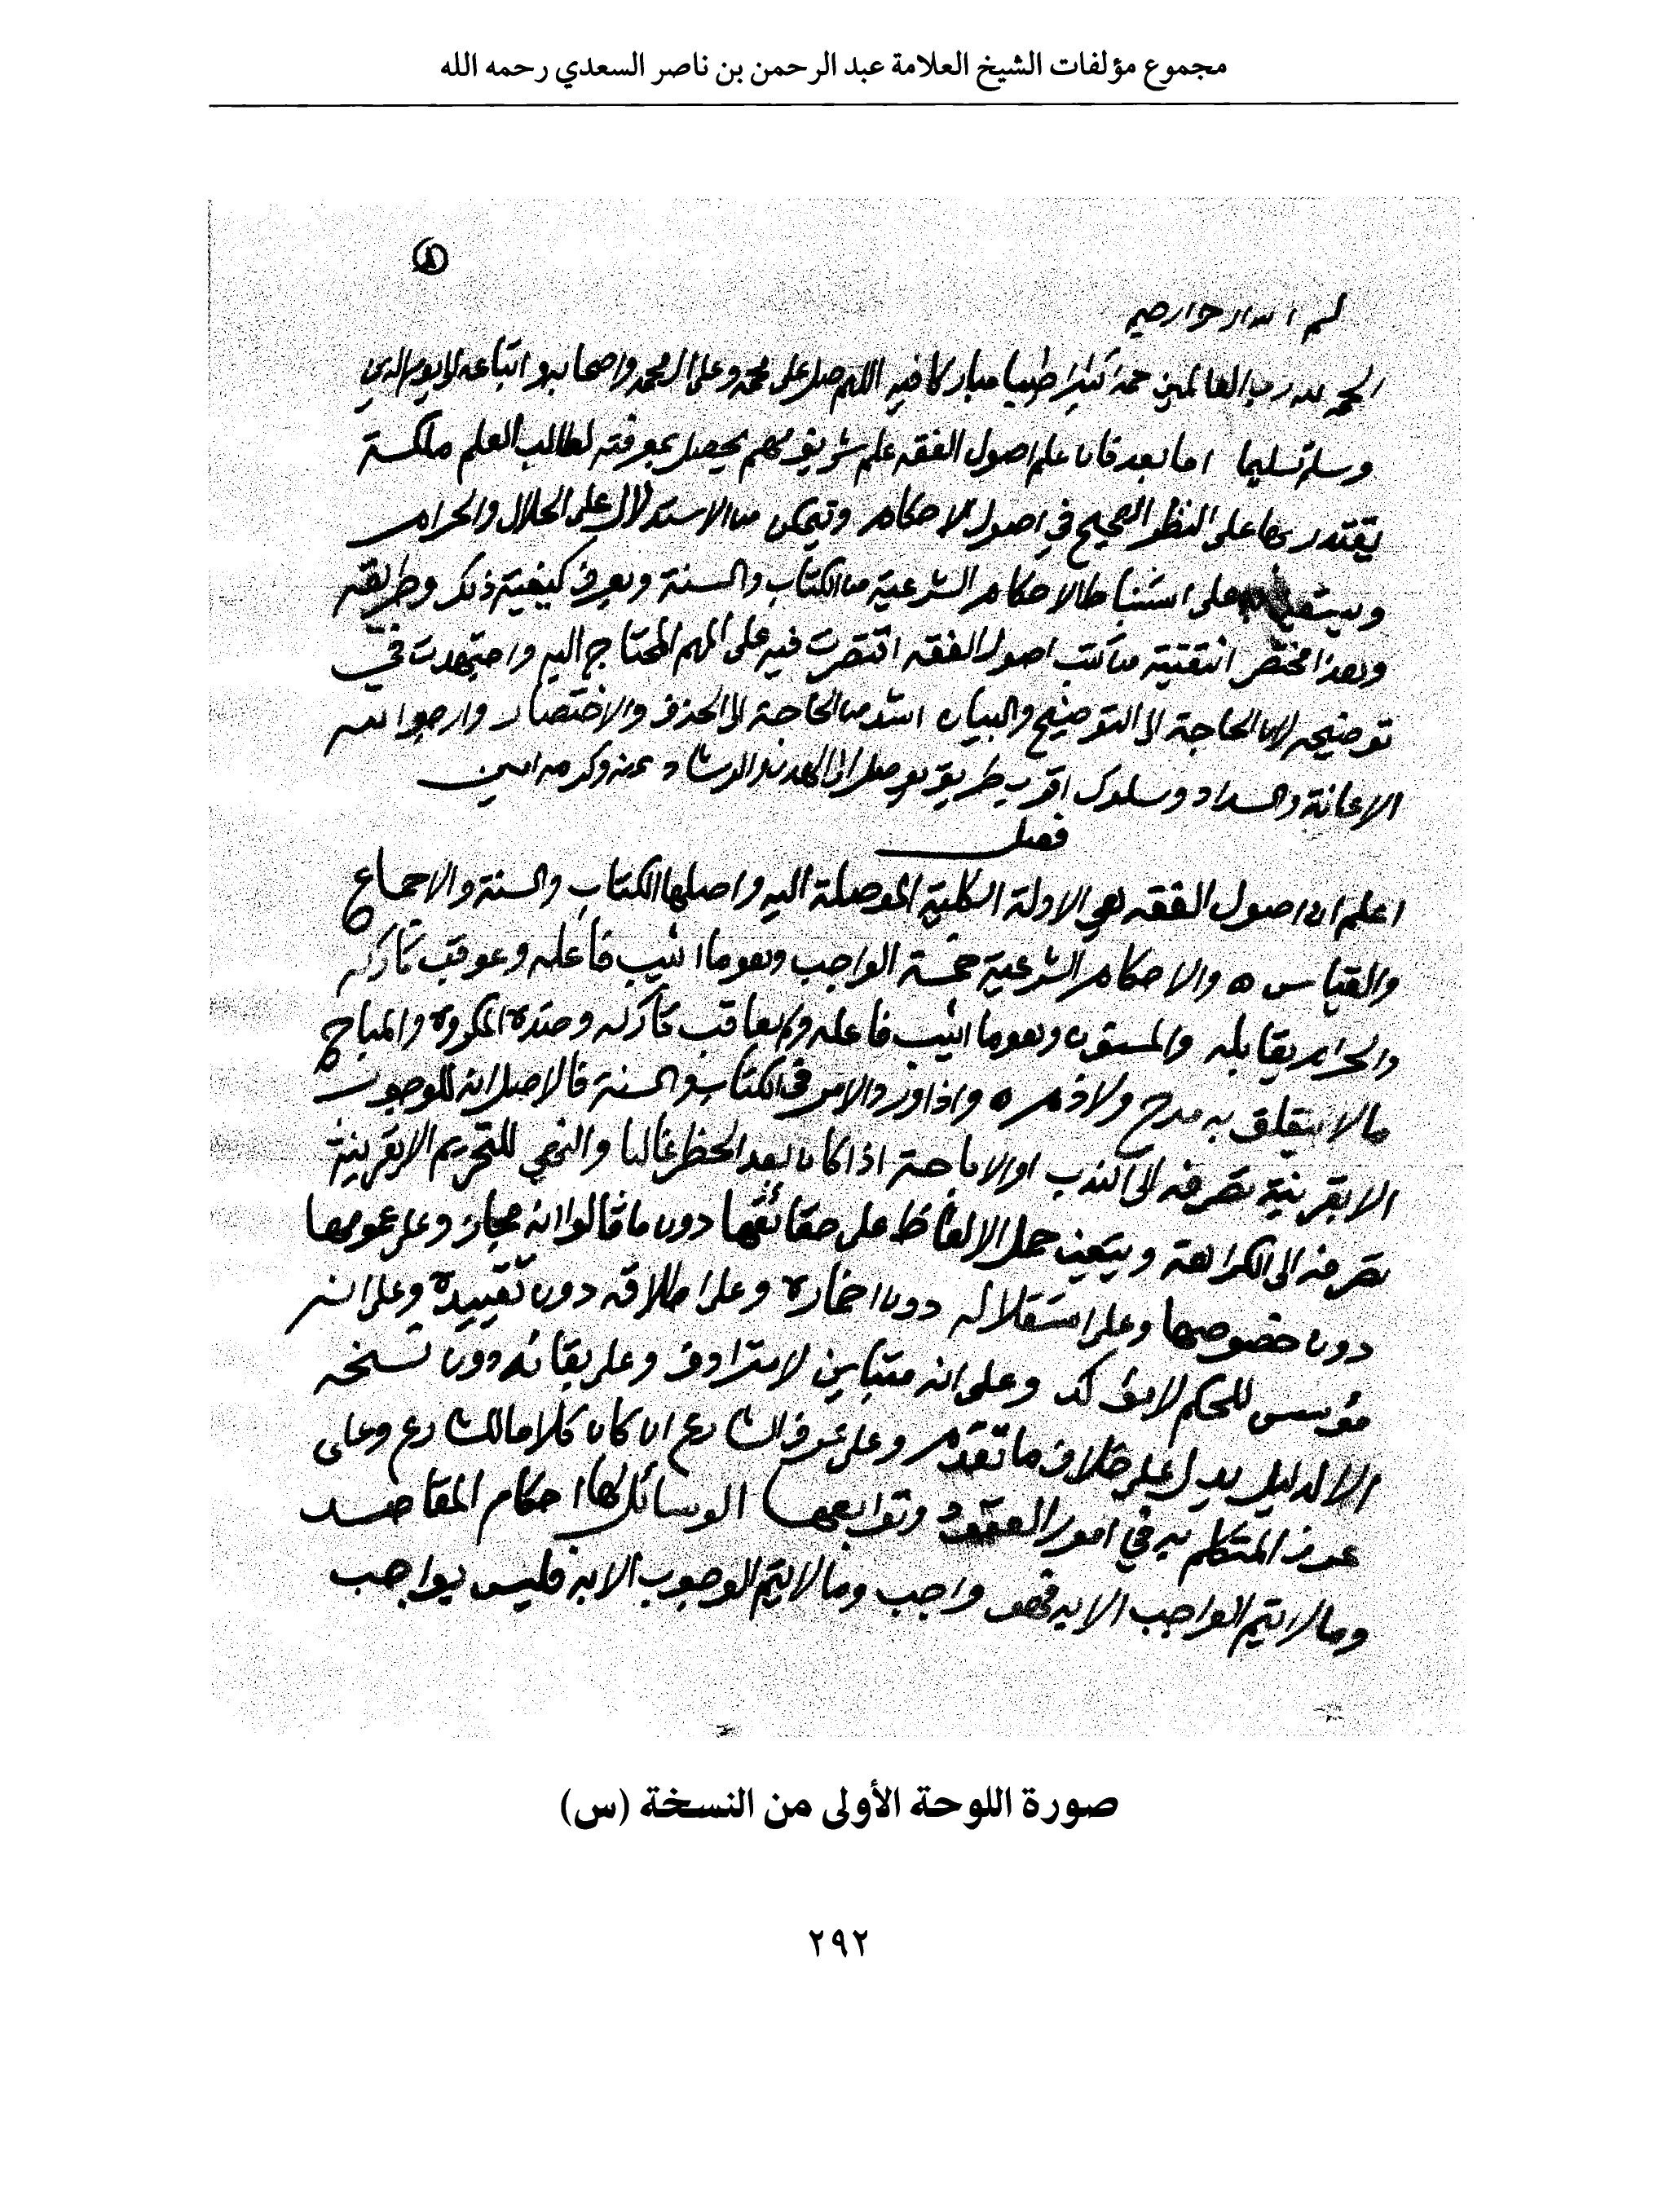 مجموع مؤلفات الشيخ العلامة عبد الرحمن بن ناصر السعدي رحمه الله
بسم الله الرحمن الرحيم
الحمد لله رب العالمين حمدا كثيرا طيبا مباركا فيه اللهم صل على محمد وعلى ال محمد واصحابه واتباعه الى يوم الدين
وسلم تسليما اما بعد فان علم اصول الفقه علم شريف مهم يحصل بمعرفته لطالب العلم ملكة
يقتدر بها على النظر الصحيح في اصول الاحكام وتمكن من الاستدلال على الحلال والحرام
ويستعين به على استنباط الاحكام الشرعية من الكتاب والسنة ويعرف كيفية ذلك وطريقه
وهذا مختصر انتقيته من كتب اصول الفقه اقتصرت فيه على المهم المحتاج اليه واجتهدت في
توضيحه لان الحاجة الى التوضيح والبيان اشد من الحاجة الى الحذف والاختصار وارجو الله
الاعانة والسداد وسلوك اقرب طريق يوصل الى الهدى والرشاد بمنه وكرمه امين
فصل
اعلم ان اصول الفقه هي الادلة الكلية الموصلة اليه واصلها الكتاب والسنة والاجماع
والقياس ه والاحكام الشرعية خمسة الواجب وهو ما اثيب فاعله وعوقب تاركه
والحرام يقابله والمسنون وهو ما اثيب فاعله ولم يعاقب تاركه وضده المكروه والمباح
مالا يتعلق به مدح ولا ذم ه واذا ورد الامر في الكتاب والسنة فالاصل انه للوجوب
الا بقرينة تصرفه الى الندب او الاباحة اذا كان بعد الحظر غالبا والنهي للتحريم الا بقرينة
تصرفه الى الكراهة ويتعين حمل الالفاظ على حقائقها دون ما قالوا انه مجاز وعلى عمومها
دون خصوصها وعلى استقلاله دون اضماره وعلى اطلاقه دون تقييده وعلى انه
مؤسس للحكم لا مؤكد وعلى انه متباين لا مترادف وعلى بقائه دون نسخه
الا لدليل يدل على خلاف ما تقدم وعلى عرف الشارع ان كان كلاما للشارع وعلى
عرف المتكلم به في امور العقود وتوابعها الوسائل لها احكام المقاصد
وما لا يتم الواجب الا به فهو واجب وما لا يتم الوجوب الا به فليس بواجب
صورة اللوحة الأولى من النسخة (س)
٢٩٢